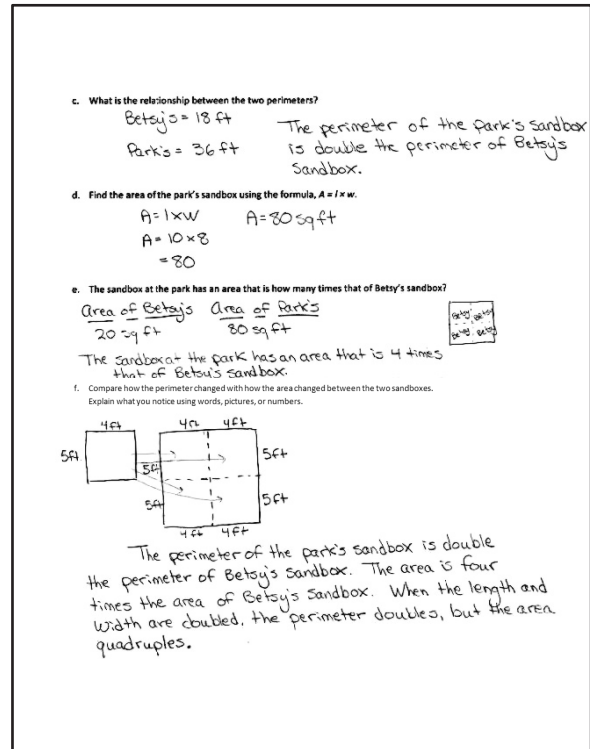 c. What is the relationship between the two perimeters?
Betsy's = 18 ft
Park's = 36 ft
The perimeter of the park's sandbox
is double the perimeter of Betsy's
Sandbox.
d. Find the area of the park's sandbox using the formula, A = l × w.
A = l × w
A = 10 × 8
= 80
A = 80 sq ft
e. The sandbox at the park has an area that is how many times that of Betsy's sandbox?
Area of Betsy's
20 sq ft
Area of Park's
80 sq ft
Betsy Betsy
Betsy Betsy
The sandbox at the park has an area that is 4 times
that of Betsy's sandbox.
f. Compare how the perimeter changed with how the area changed between the two sandboxes.
Explain what you notice using words, pictures, or numbers.
4ft 4ft 4ft
5ft 5ft 5ft
5ft 5ft
4ft 4ft
The perimeter of the park's sandbox is double
the perimeter of Betsy's Sandbox. The area is four
times the area of Betsy's Sandbox. When the length and
width are doubled, the perimeter doubles, but the area
quadruples.